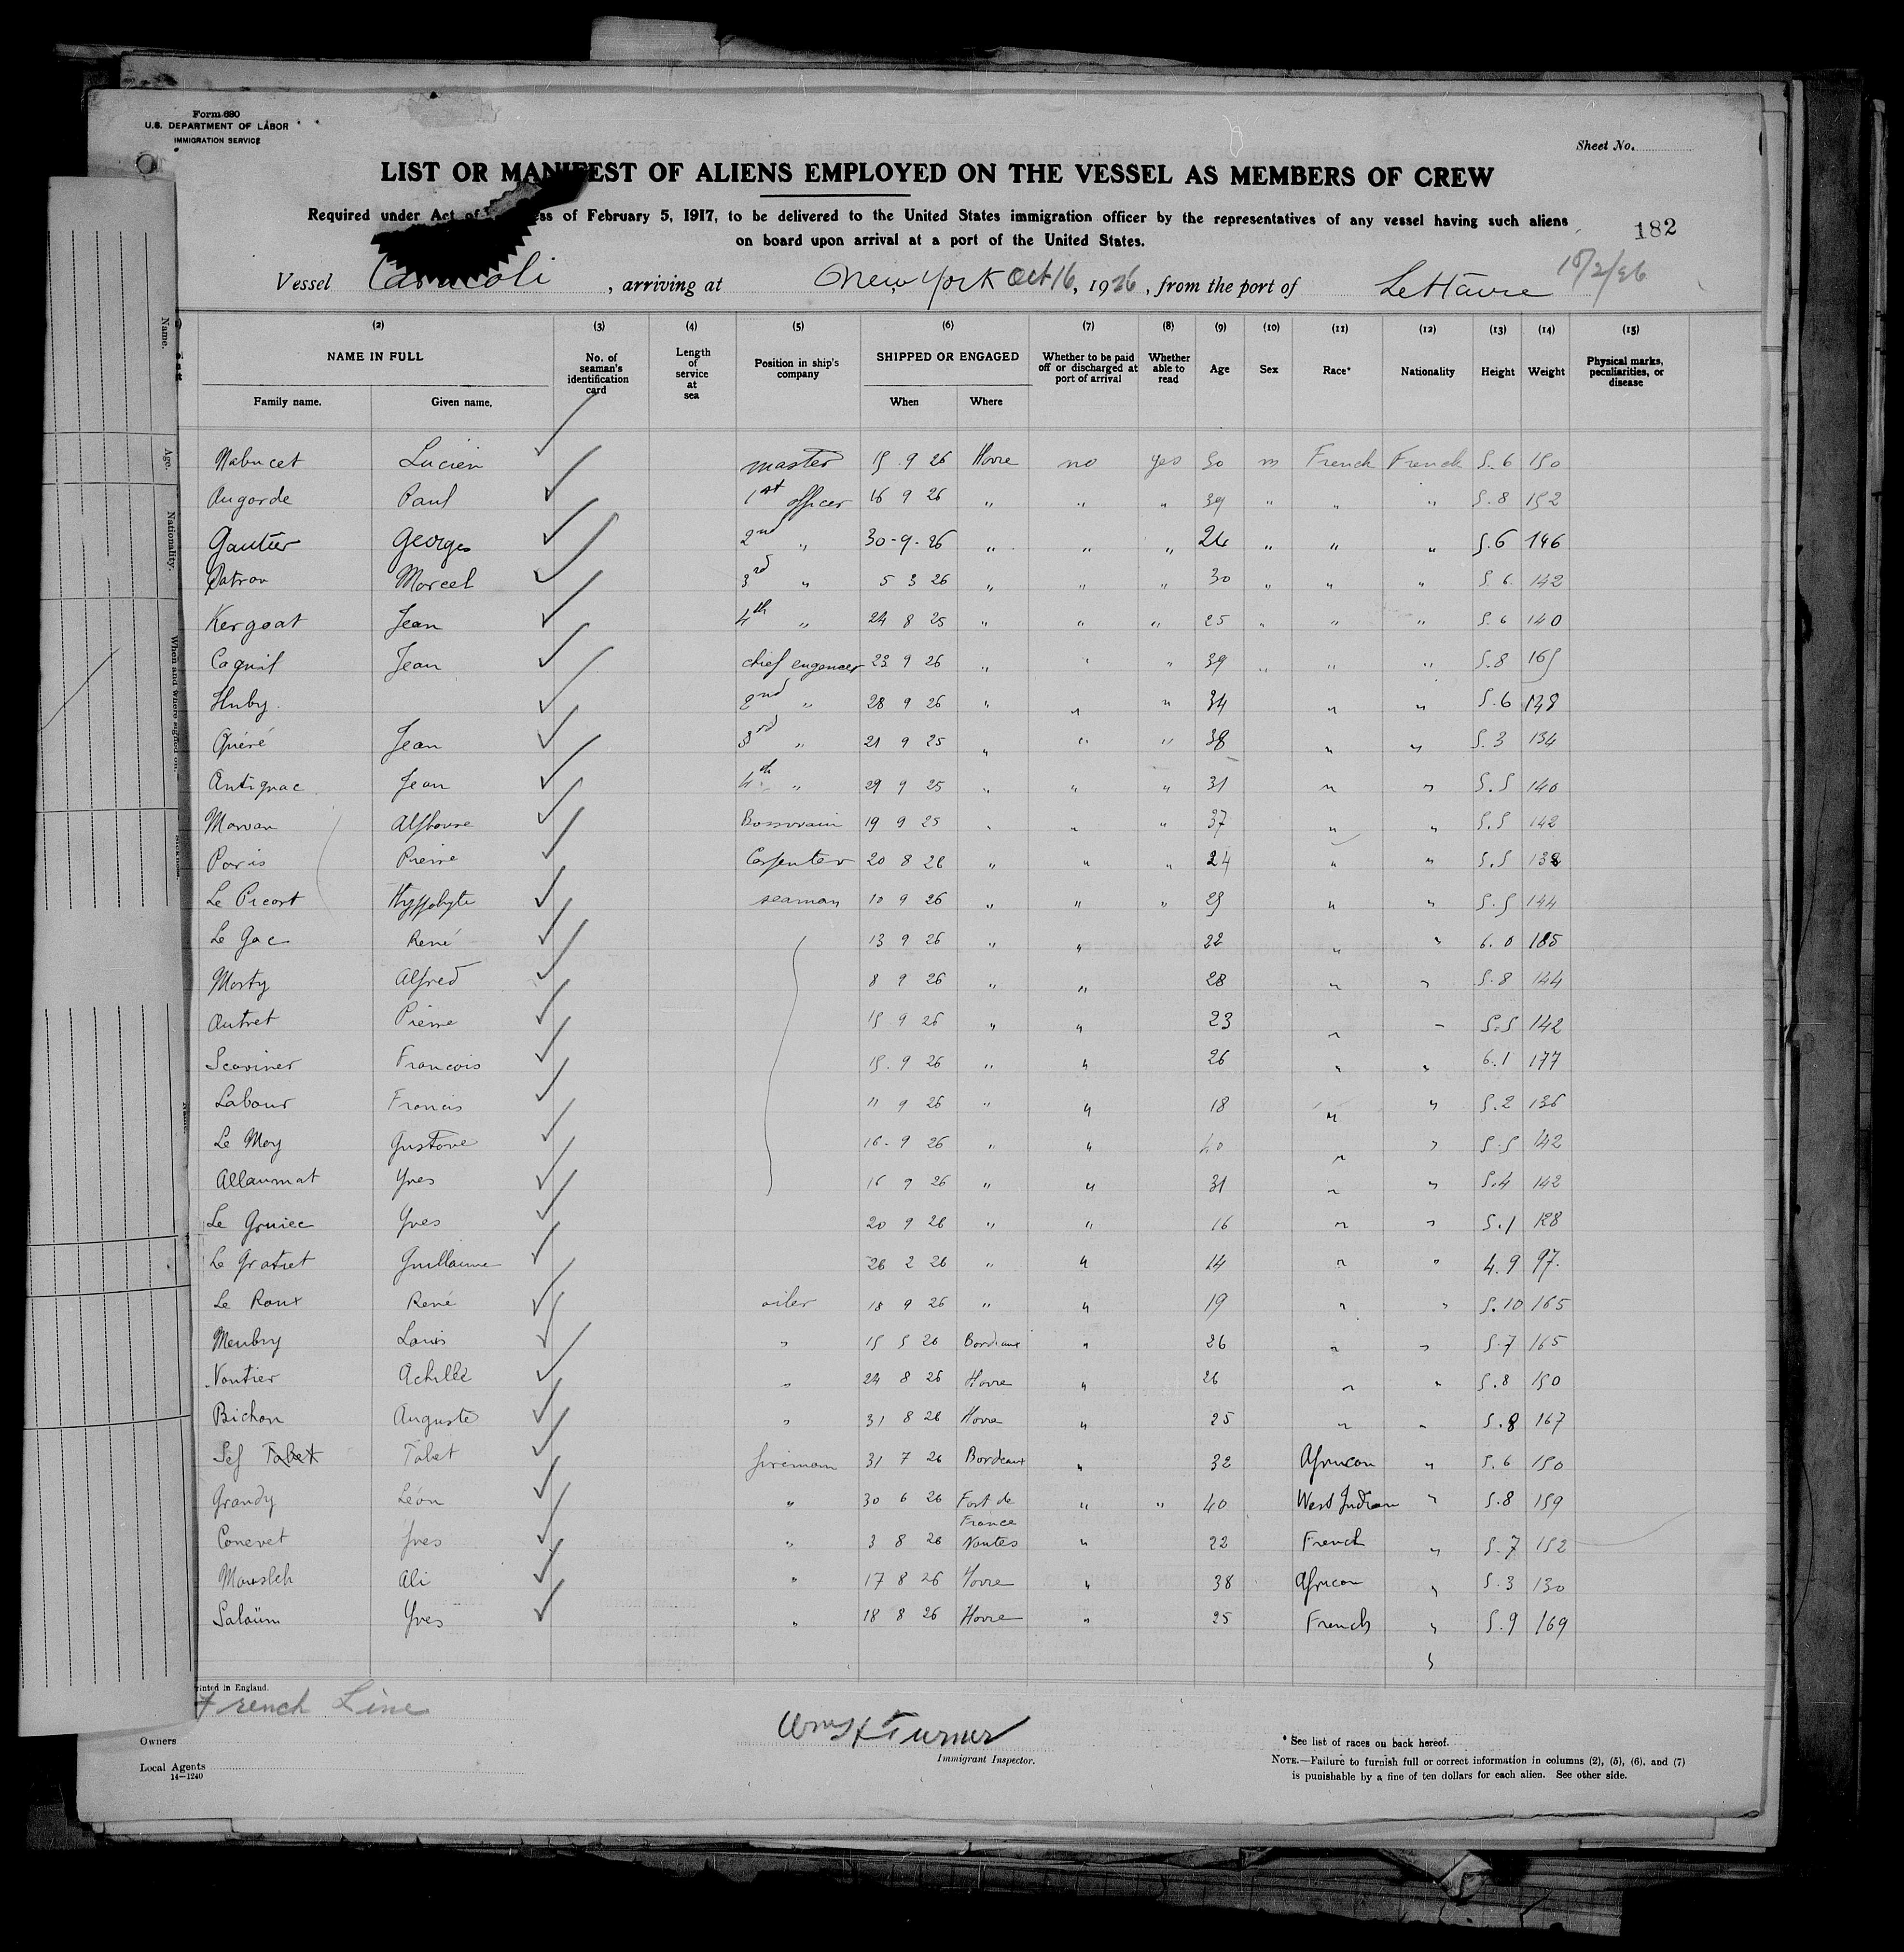 Form 680
U.S. DEPARTMENT OF LABOR
IMMIGRATION SERVICE
Sheet No.
LIST OR MANIFEST OF ALIENS EMPLOYED ON THE VESSEL AS MEMBERS OF CREW
Required under Act of ess of February 5, 1917, to be delivered to the United States immigration officer by the representatives of any vessel having such aliens
on board upon arrival at a port of the United States.
182
Vessel Caracoli, arriving at New York Oct 16, 1926, from the port of Le Havre
(2) (3) (4) (5) (6) (7) (8) (9) (10) (11) (12) (13) (14) (15)
NAME IN FULL No. of seaman's identification card Length of service at sea Position in ship's company SHIPPED OR ENGAGED Whether to be paid off or discharged at port of arrival Whether able to read Age Sex Race* Nationality Height Weight Physical marks, peculiarities, or disease
Family name. Given name. When Where
Nabucet Lucien master 15 9 26 Havre no yes 50 m French French 5.6 150
Augarde Paul 1st officer 16 9 26 " " " 39 " " " 5.8 152
Gautier Georges 2nd " 30-9-26 " " " 24 " " " 5.6 146
Patron Marcel 3rd " 5 3 26 " " " 30 " " " 5.6 142
Kergoat Jean 4th " 24 8 25 " " " 25 " " " 5.6 140
Jean chief engeneer 23 9 26 " " " 39 " " " 5.8 165
Huby 2nd " 28 9 26 " " " 34 " " 5.6 148
Quéré Jean 3rd " 21 9 25 " " " 38 " " 5.3 134
Antignac Jean 4th " 29 9 25 " " " 31 " " 5.5 140
Marvan Alphonse 19 9 25 " " " 37 " " 5.5 142
Paris Pierre Carpenter 20 8 26 " " " 24 " " 5.5 138
Le Picart Hyppolyte seaman 10 9 26 " " " 29 " " 5.5 144
Le Gac René 13 9 26 " " 22 " " 6.0 185
Marty Alfred 8 9 26 " " 28 " " 5.8 144
Autret Pierre 15 9 26 " " 23 " " 5.5 142
Scaviner Francois 15.9 26 " " 26 " " 6.1 177
Labour Francis 11 9 26 " " 18 " " 5.2 136
Le Moy Gustave 16-9 26 " " 40 " " 5.5 142
Allaumat Yves 16 9 26 " " 31 " " 5.4 142
Le Gruiec Yves 20 9 26 " " 16 " " 5.1 128
Le Gratiet Guillaume 26 2 26 " " 14 " " 4.9 97.
Le Roux René oiler 18 9 26 " " 19 " " 5.10 165
Meubry Louis " 15 5 26 Bordeaux " 26 " " 5.7 165
Vautier Achille " 24 8 26 Havre " 26 " " 5.8 150
Bichon Auguste " 31 8 26 Havre " 25 " " 5.8 167
Sef Tabet Tabet fireman 31 7 26 Bordeaux " 32 African " 5.6 150
Grandy Léon " 30 6 26 Fort de France " " 40 West Indian " 5.8 159
Conevet Yves " 3 8 26 Nantes " 22 French " 5.7 152
Mousleh Ali " 17 8 26 Havre " 38 African " 5.3 130
Salaün Yves " 18 8 26 Havre " 25 French " 5.9 169
"
Printed in England.
French Line
Owners
Local Agents
14—1240
Turner
Immigrant Inspector.
* See list of races on back hereof.
NOTE.—Failure to furnish full or correct information in columns (2), (5), (6), and (7)
is punishable by a fine of ten dollars for each alien. See other side.
Name.
Age.
Nationality.
When and where signed on.